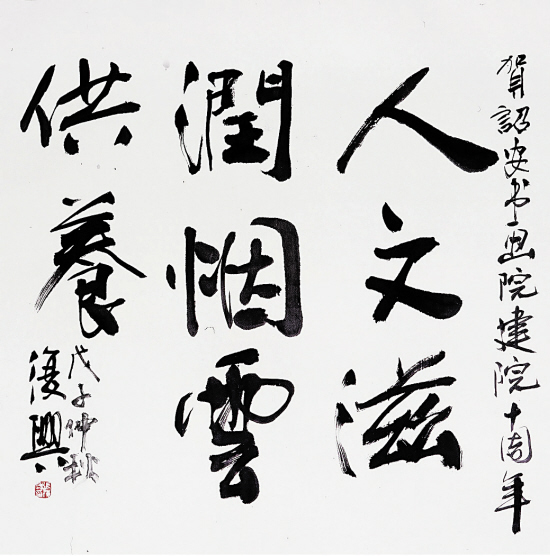 賀詔安书画院建院十周年
人文滋
潤烟雲
供養
戊子仲秋
復興